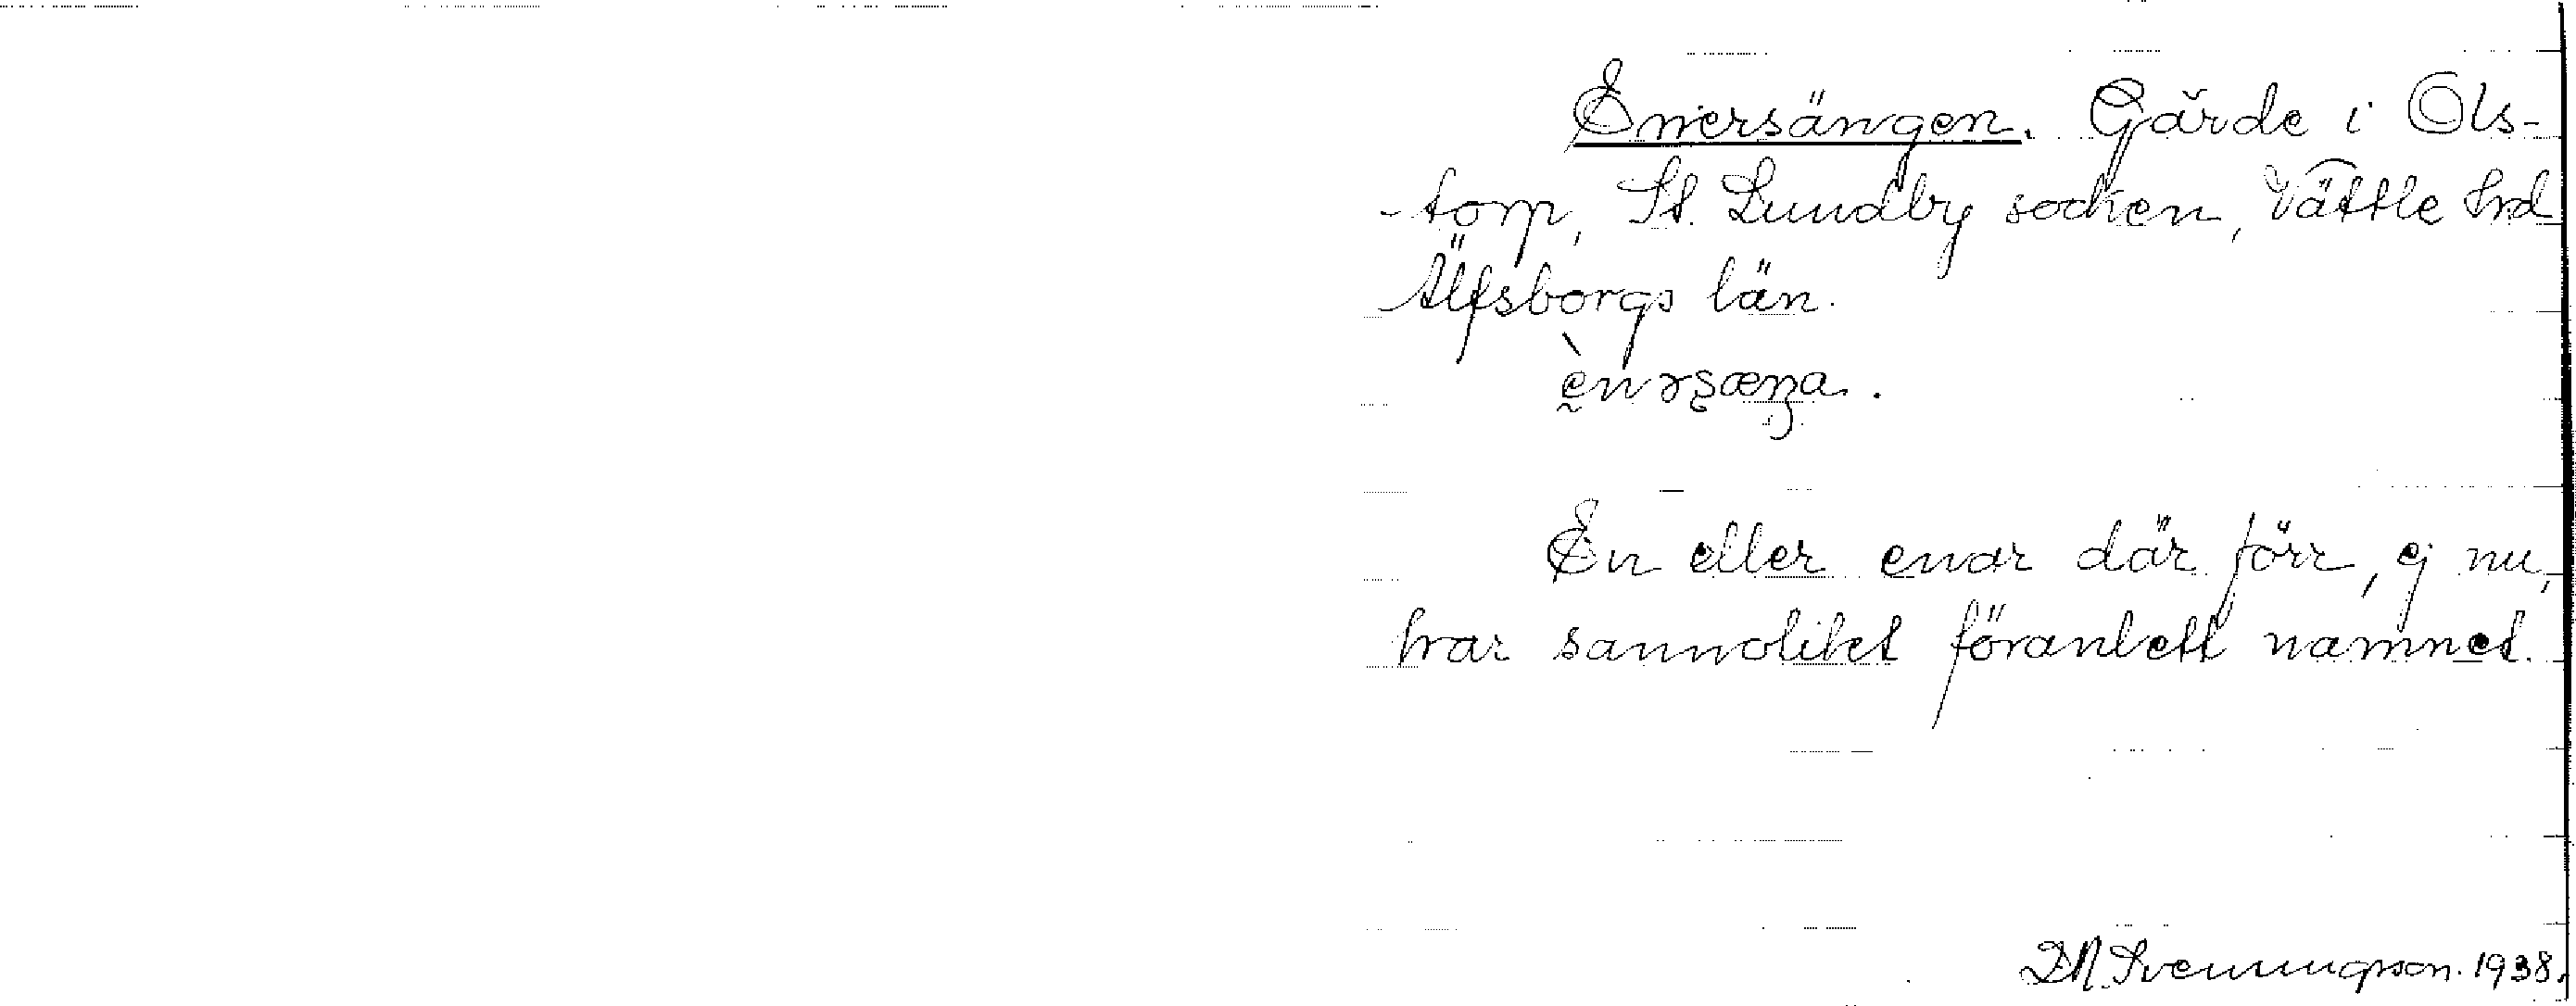 Enersängen. Gärde i Ols-
torp, St. Lundby socken, Vättle hd
Älfsborgs län.
ènɿsæŋa.
En eller enar där förr, ej nu,
har sannolikt föranlett namnet.
Svenungsson. 1938.